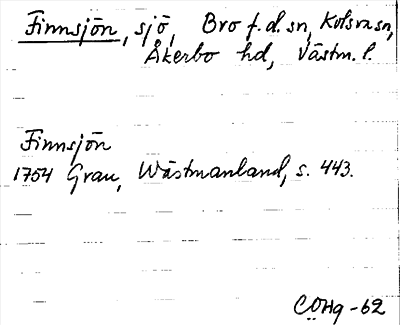 Finnsjön, sjö, Bro f.d. sn, Kolsva sn,
Åkerbo hd, Västm. l.
Finnsjön
1754 Grau, Wästmanland, s. 443.
CÖHg -62